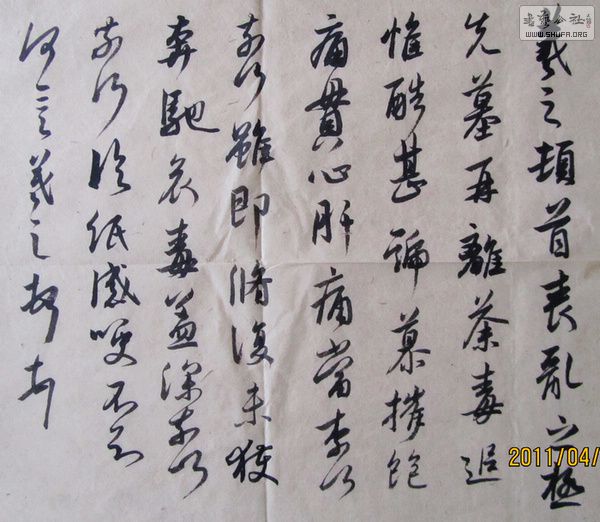 書藝公社
WWW.SHUFA.ORG
羲之頓首喪亂之極
先墓再離荼毒追
惟酷甚號慕摧絕
痛貫心肝痛當奈何
奈何雖即脩復未獲
奔馳哀毒益深奈何
奈何臨紙感哽不知
何言羲之頓首
2011/04/